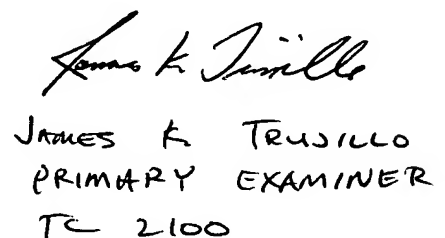 James K Trujillo
JAMES K TRUJILLO
PRIMARY EXAMINER
TC 2100